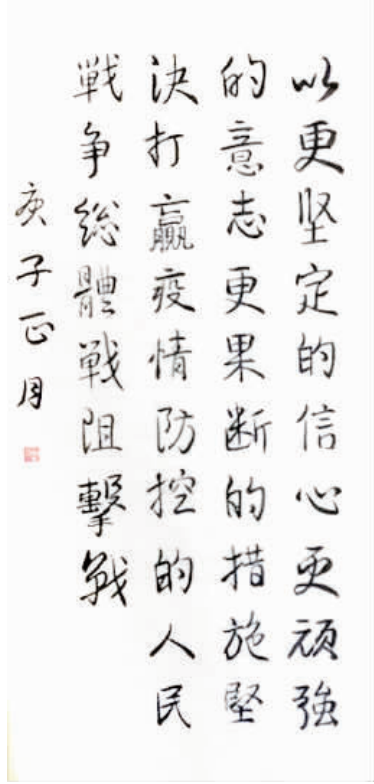 以更坚定的信心更顽強
的意志更果断的措施堅
決打赢疫情防控的人民
戦争総體戦阻擊戦
庚子正月